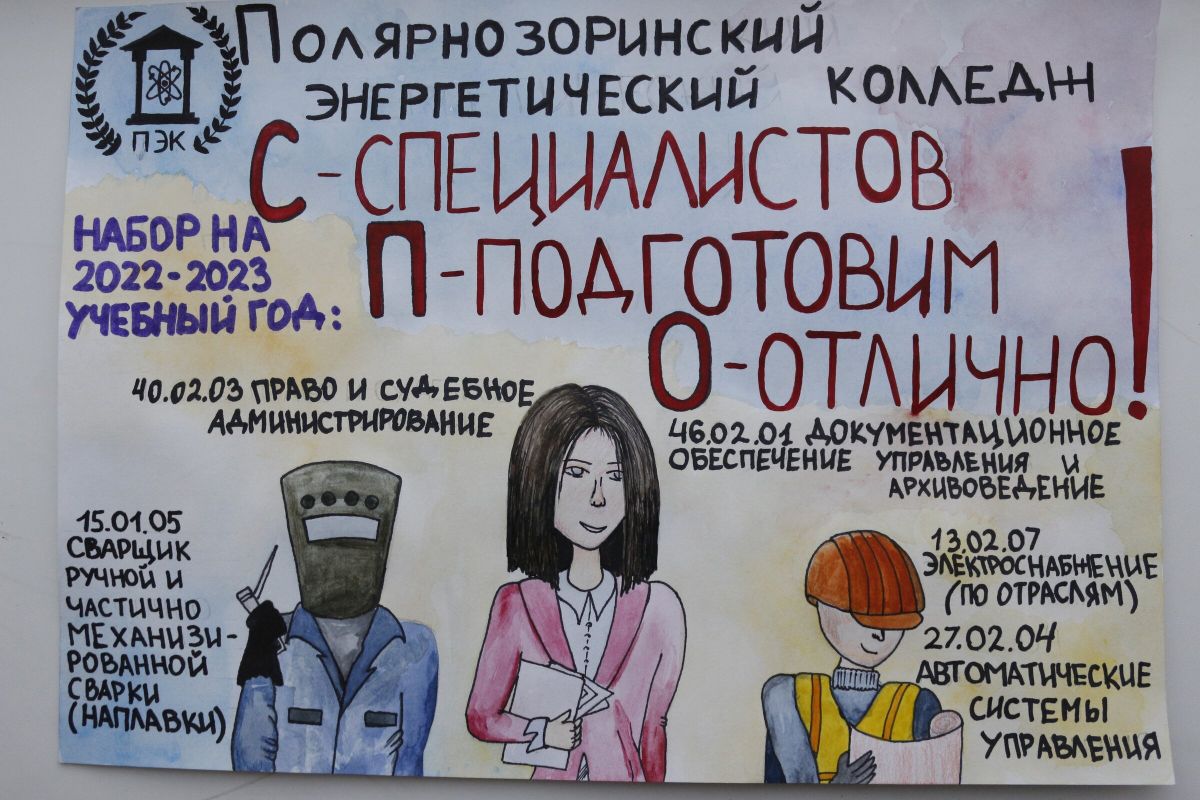 ПЭК
Полярнозоринский
энергетический колледж
С - СПЕЦИАЛИСТОВ
П - ПОДГОТОВИМ
О - ОТЛИЧНО!
НАБОР НА
2022-2023
УЧЕБНЫЙ ГОД:
40.02.03 ПРАВО И СУДЕБНОЕ
АДМИНИСТРИРОВАНИЕ
46.02.01 ДОКУМЕНТАЦИОННОЕ
ОБЕСПЕЧЕНИЕ УПРАВЛЕНИЯ И
АРХИВОВЕДЕНИЕ
15.01.05
СВАРЩИК
РУЧНОЙ И
ЧАСТИЧНО
МЕХАНИЗИ-
РОВАННОЙ
СВАРКИ
(НАПЛАВКИ)
13.02.07
ЭЛЕКТРОСНАБЖЕНИЕ
(ПО ОТРАСЛЯМ)
27.02.04
АВТОМАТИЧЕСКИЕ
СИСТЕМЫ
УПРАВЛЕНИЯ